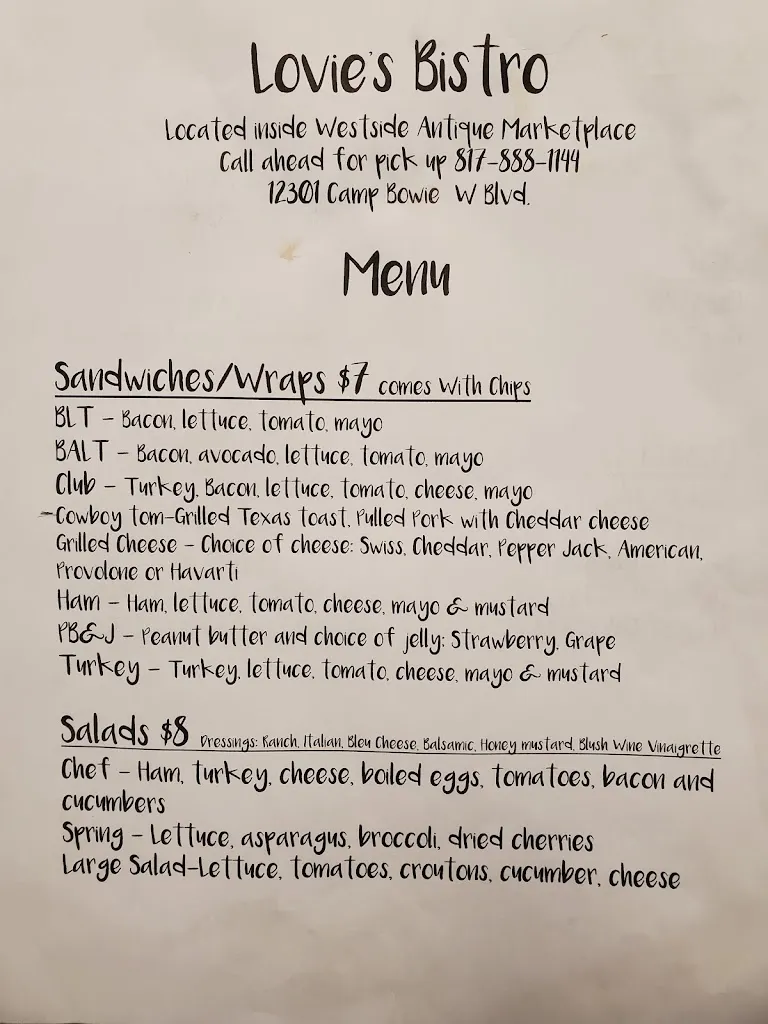 Lovie's Bistro
Located inside Westside Antique Marketplace
Call ahead for pick up 817-888-1144
12301 Camp Bowie W Blvd.
Menu
Sandwiches/Wraps $7 comes With Chips
BLT - Bacon, lettuce, tomato, mayo
BALT - Bacon, avocado, lettuce, tomato, mayo
Club - Turkey, Bacon, lettuce, tomato, cheese, mayo
-Cowboy tom-Grilled Texas toast, Pulled Pork with Cheddar cheese
Grilled Cheese - Choice of cheese: Swiss, Cheddar, Pepper Jack, American,
Provolone or Havarti
Ham - Ham, lettuce, tomato, cheese, mayo & mustard
PB&J - Peanut butter and choice of jelly: Strawberry, Grape
Turkey - Turkey, lettuce, tomato, cheese, mayo & mustard
Salads $8 Dressings: Ranch, Italian, Bleu Cheese, Balsamic, Honey mustard, Blush Wine Vinaigrette
Chef - Ham, turkey, cheese, boiled eggs, tomatoes, bacon and
cucumbers
Spring - Lettuce, asparagus, broccoli, dried cherries
Large Salad-Lettuce, tomatoes, croutons, cucumber, cheese